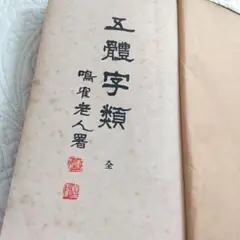 五體字類
鳴雀老人署
全